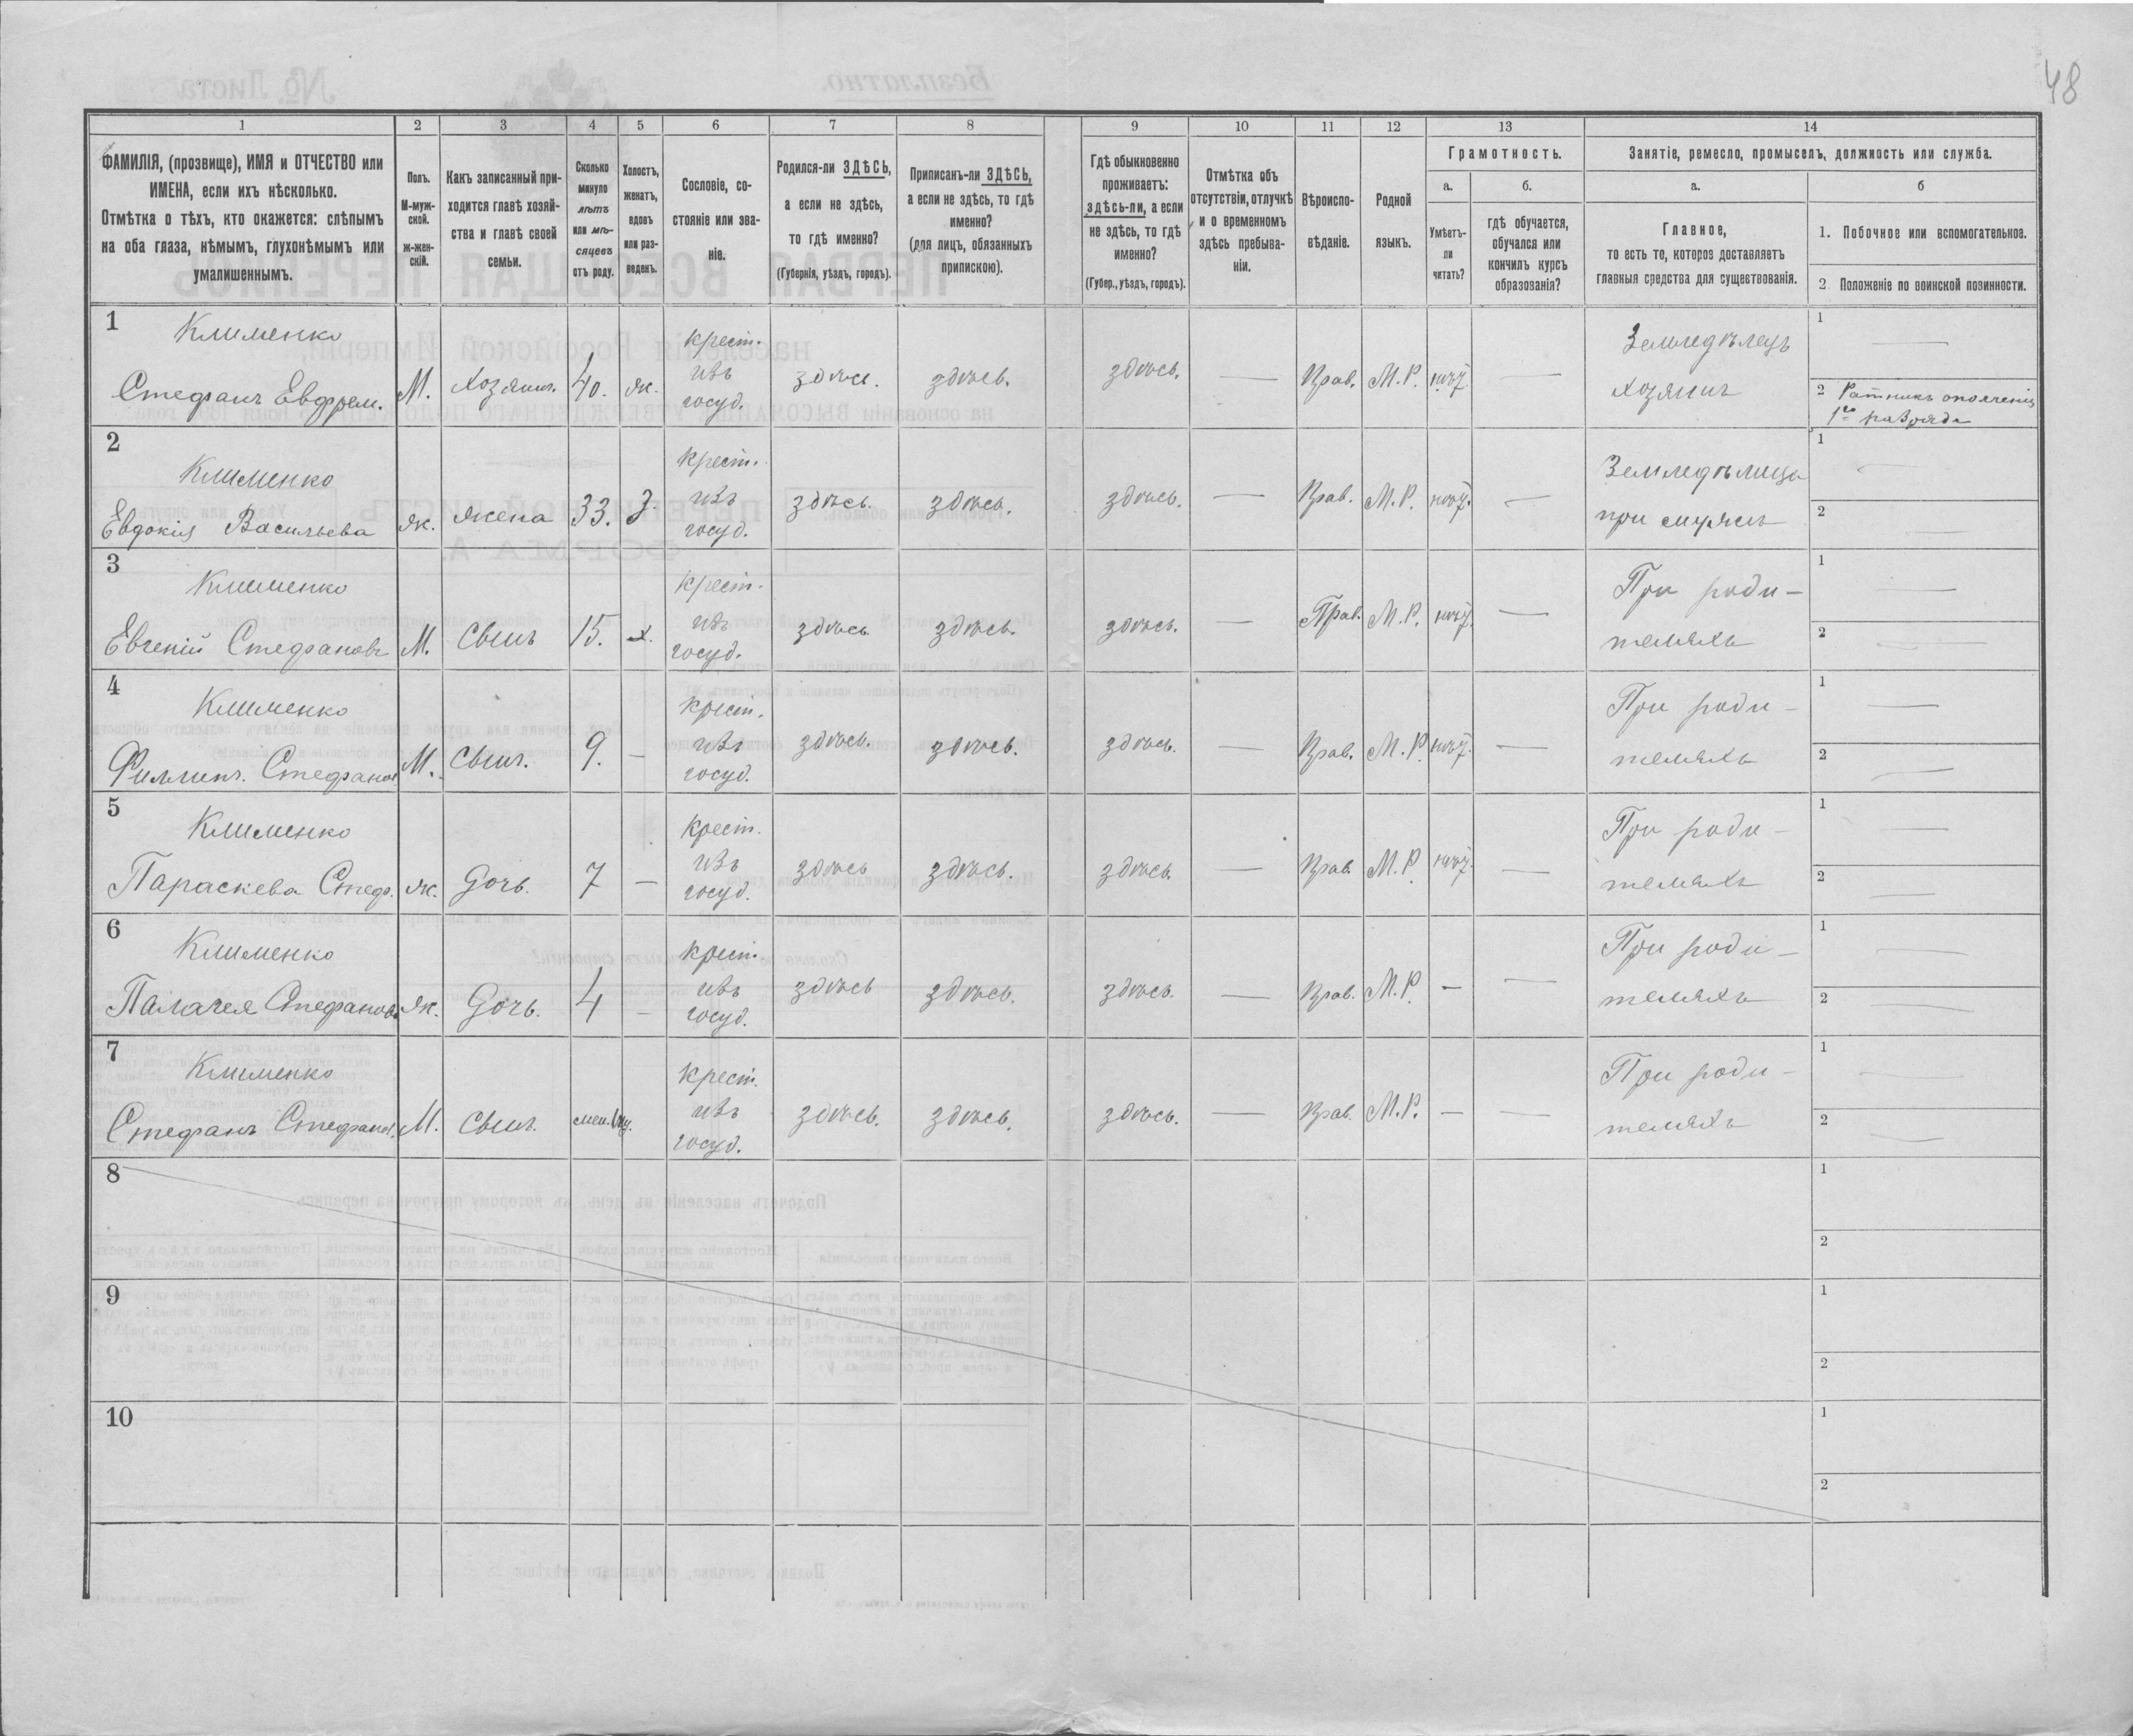 48
1 2 3 4 5 6 7 8 9 10 11 12 13 14
ФАМИЛІЯ, (прозвище), ИМЯ и ОТЧЕСТВО или ИМЕНА, если ихъ нѣсколько.
Отмѣтка о тѣхъ, кто окажется: слѣпымъ на оба глаза, нѣмымъ, глухонѣмымъ или умалишеннымъ.
Полъ. М-мужской. ж-женскій.
Какъ записанный приходится главѣ хозяйства и главѣ своей семьи.
Сколько минуло лѣтъ или мѣсяцевъ отъ роду.
Холостъ, женатъ, вдовъ или разведенъ.
Сословіе, состояніе или званіе.
Родился-ли ЗДѢСЬ, а если не здѣсь, то гдѣ именно? (Губернія, уѣздъ, городъ).
Приписанъ-ли ЗДѢСЬ, а если не здѣсь, то гдѣ именно? (для лицъ, обязанныхъ припискою).
Гдѣ обыкновенно проживаетъ: здѣсь-ли, а если не здѣсь, то гдѣ именно? (Губер., уѣздъ, городъ).
Отмѣтка объ отсутствіи, отлучкѣ и о временномъ здѣсь пребываніи.
Вѣроисповѣданіе.
Родной языкъ.
Грамотность.
а. Умѣетъ-ли читать?
б. гдѣ обучается, обучался или кончилъ курсъ образованія?
Занятіе, ремесло, промыселъ, должность или служба.
а. Главное, то есть то, которое доставляетъ главныя средства для существованія.
б
1. Побочное или вспомогательное.
2. Положеніе по воинской повинности.
1 Клименко
Стефанъ Евфрем. М. Хозяинъ. 40. ж. крест. изъ госуд. здѣсь. здѣсь. здѣсь. — Прав. М.Р. нѣт. — Земледѣлецъ хозяинъ 1 — 2 Ратникъ ополченія 1го разряда
2 Клименко
Евдокія Васильева ж. жена 33. З. крест. изъ госуд. здѣсь. здѣсь. здѣсь. — Прав. М.Р. нѣт. — Земледѣлица при мужѣ 1 — 2 —
3 Клименко
Евгеній Стефановъ М. Сынъ 15. х. крест. изъ госуд. здѣсь. здѣсь. здѣсь. — Прав. М.Р. нѣт. — При родителяхъ 1 — 2 —
4 Клименко
Филиппъ. Стефанов М. Сынъ. 9. — крест. изъ госуд. здѣсь. здѣсь. здѣсь. — Прав. М.Р. нѣт. — При родителяхъ 1 — 2 —
5 Клименко
Параскева Стеф. ж. Дочь. 7 — крест. изъ госуд. здѣсь здѣсь. здѣсь. — Прав. М.Р. нѣт. — При родителяхъ 1 — 2 —
6 Клименко
Палагея Стефанова ж. Дочь. 4 — крест. изъ госуд. здѣсь здѣсь. здѣсь. — Прав. М.Р. — — При родителяхъ 1 — 2 —
7 Клименко
Стефанъ Стефанов. М. Сынъ. крест. изъ госуд. здѣсь. здѣсь. здѣсь. — Прав. М.Р. — — При родителяхъ 1 — 2 —
8 1 2
9 1 2
10 1 2